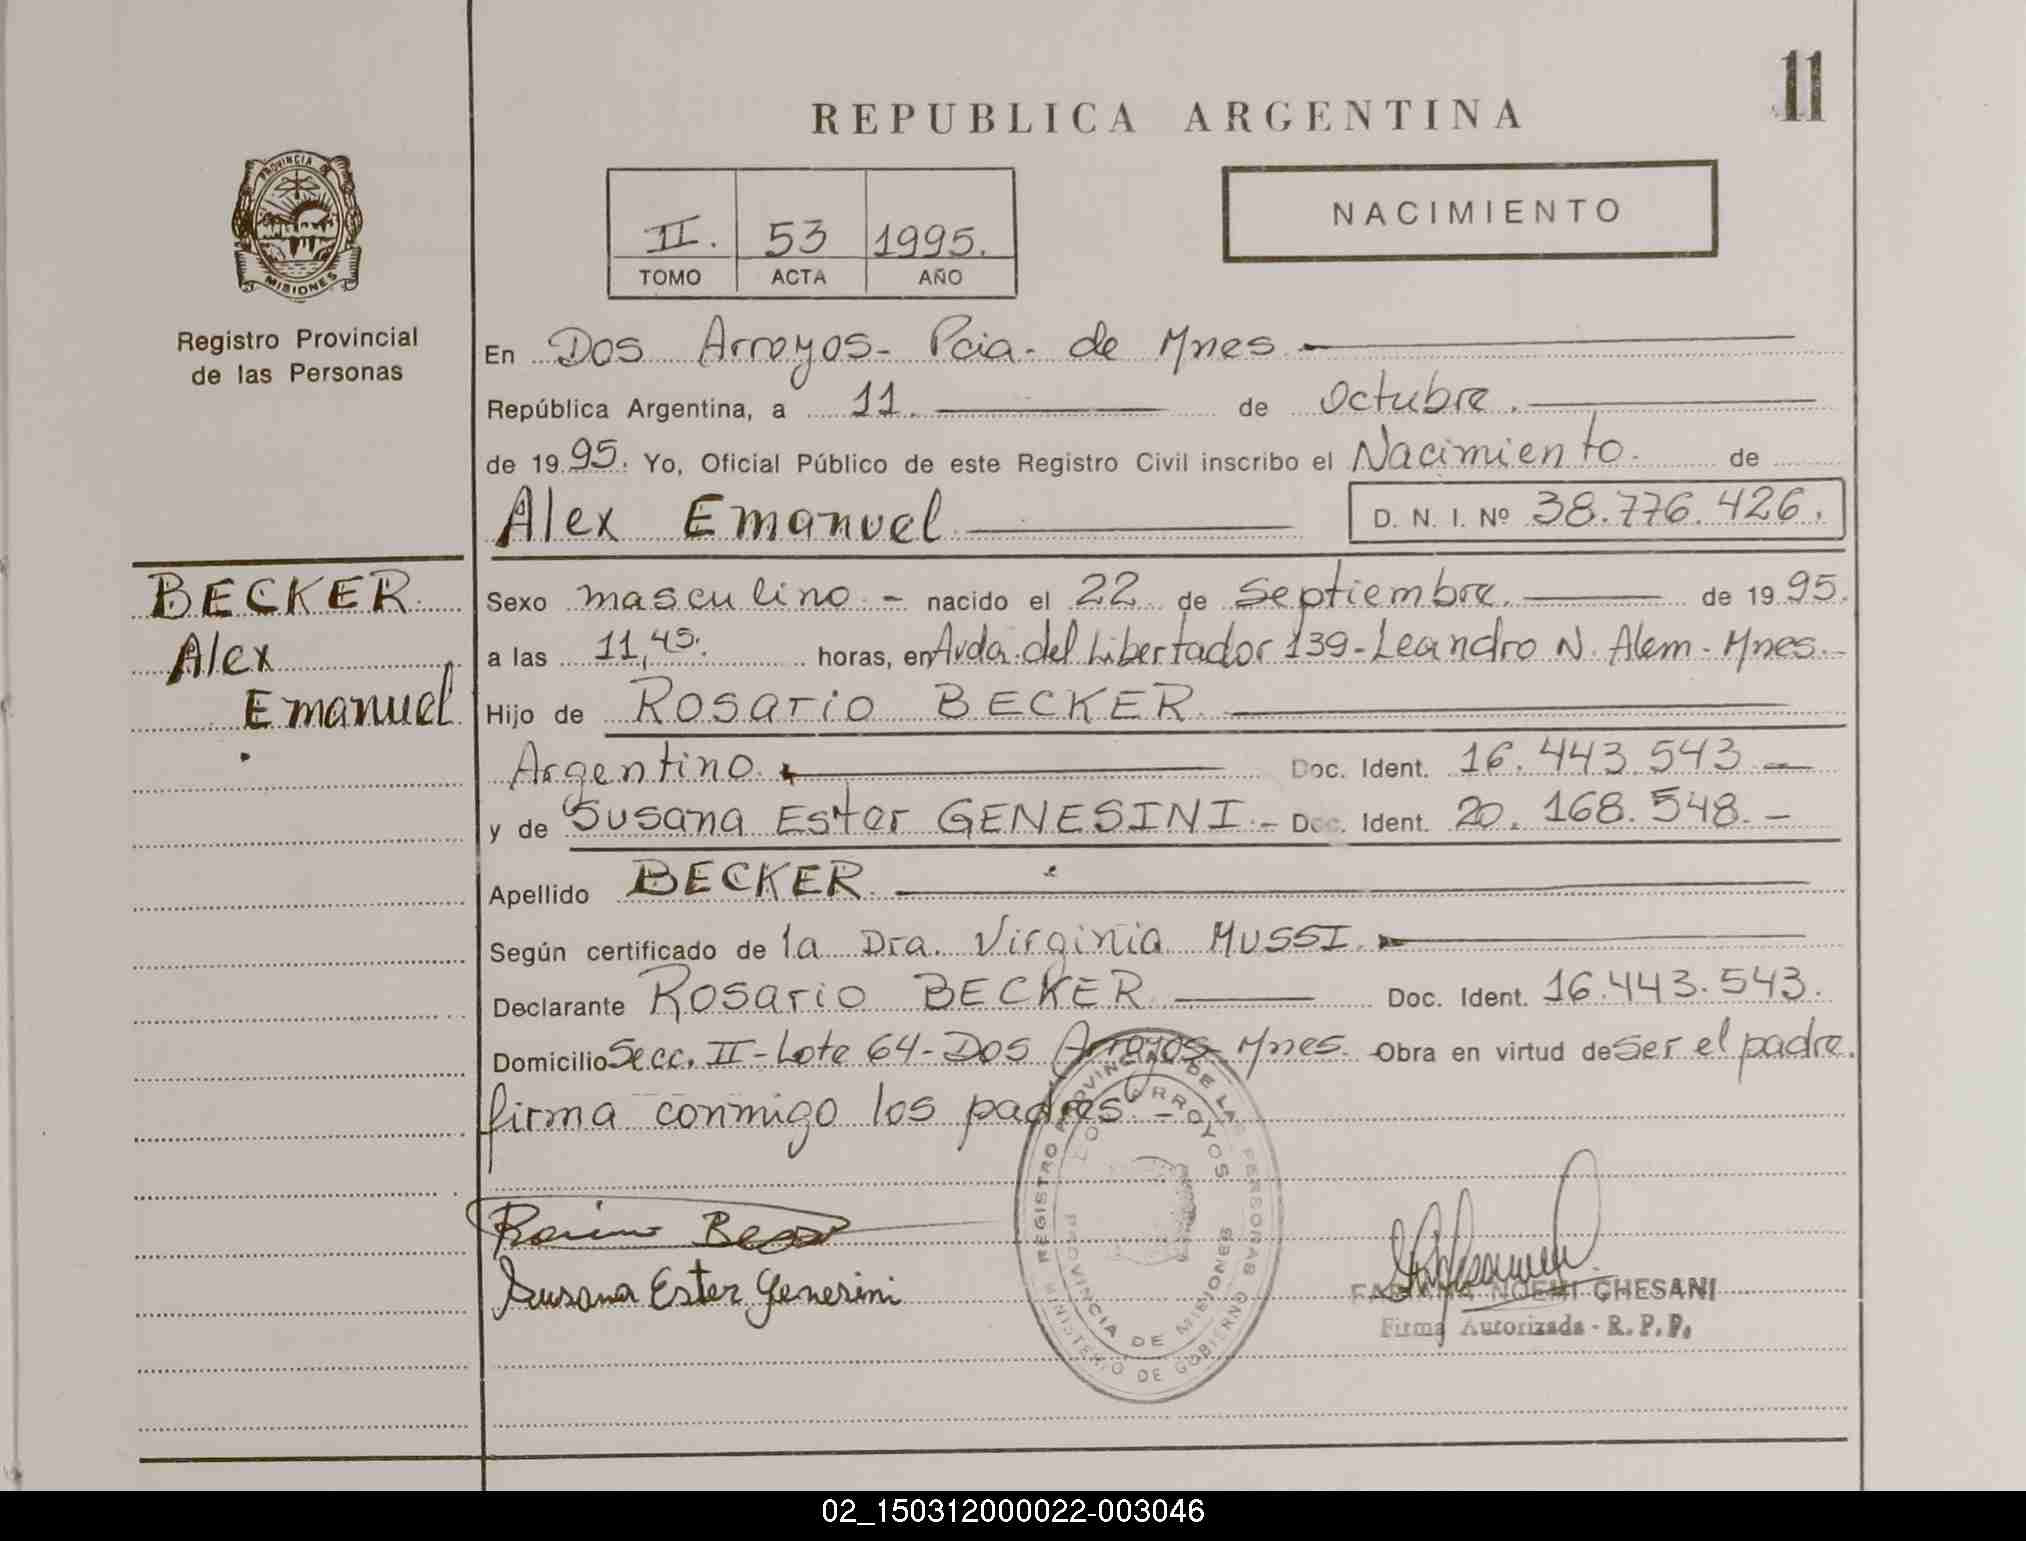 REPUBLICA ARGENTINA
11
PROVINCIA DE
MISIONES
Registro Provincial
de las Personas
II. 53 1995.
TOMO ACTA AÑO
NACIMIENTO
En Dos Arroyos- Pcia- de Mnes
República Argentina, a 11. de Octubre.
de 1995. Yo, Oficial Público de este Registro Civil inscribo el Nacimiento. de
Alex Emanuel D. N. I. Nº 38.776.426.
BECKER
Alex
Emanuel
Sexo masculino - nacido el 22 de Septiembre. de 1995.
a las 11,45. horas, en Avda. del Libertador 139-Leandro N. Alem- Mnes.-
Hijo de Rosario BECKER
Argentino. Doc. Ident. 16.443.543-
y de Susana Ester GENESINI.- Doc. Ident. 20.168.548.-
Apellido BECKER.
Según certificado de la Dra. Virginia MUSSI.
Declarante Rosario BECKER Doc. Ident. 16.443.543.
Domicilio Secc. II-Lote 64-Dos Arroyos-Mnes. Obra en virtud de ser el padre.
firma conmigo los padres.-
REGISTRO PROVINCIAL DE LAS PERSONAS
DOS ARROYOS
PROVINCIA DE MISIONES
MINISTERIO DE GOBIERNO
Susana Ester Genesini
FABIANA NOEMI GHESANI
Firma Autorizada - R. P. P.
02_150312000022-003046